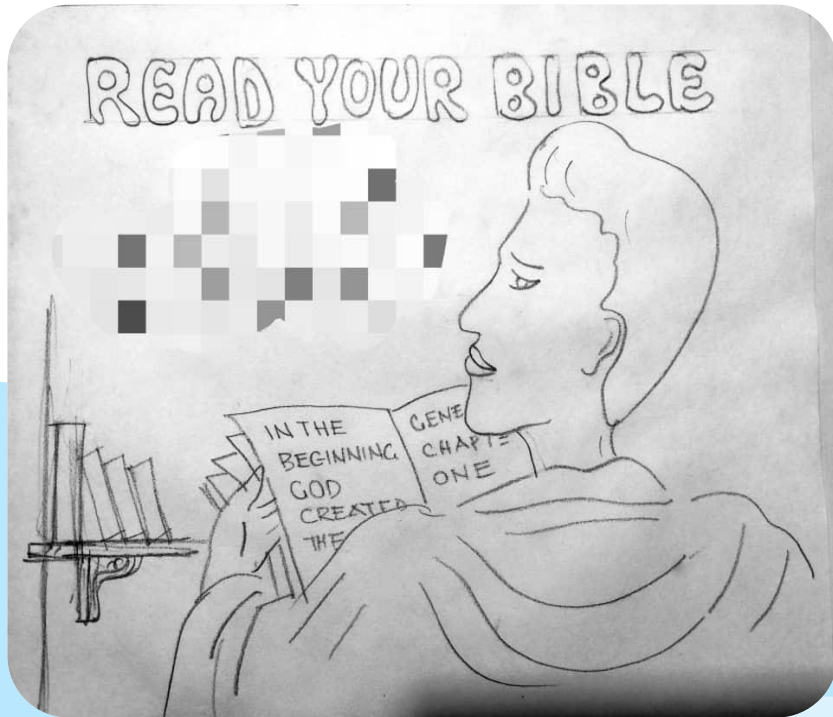 READ YOUR BIBLE
IN THE
BEGINNING
GOD
CREATED
THE
CHAPTE
ONE